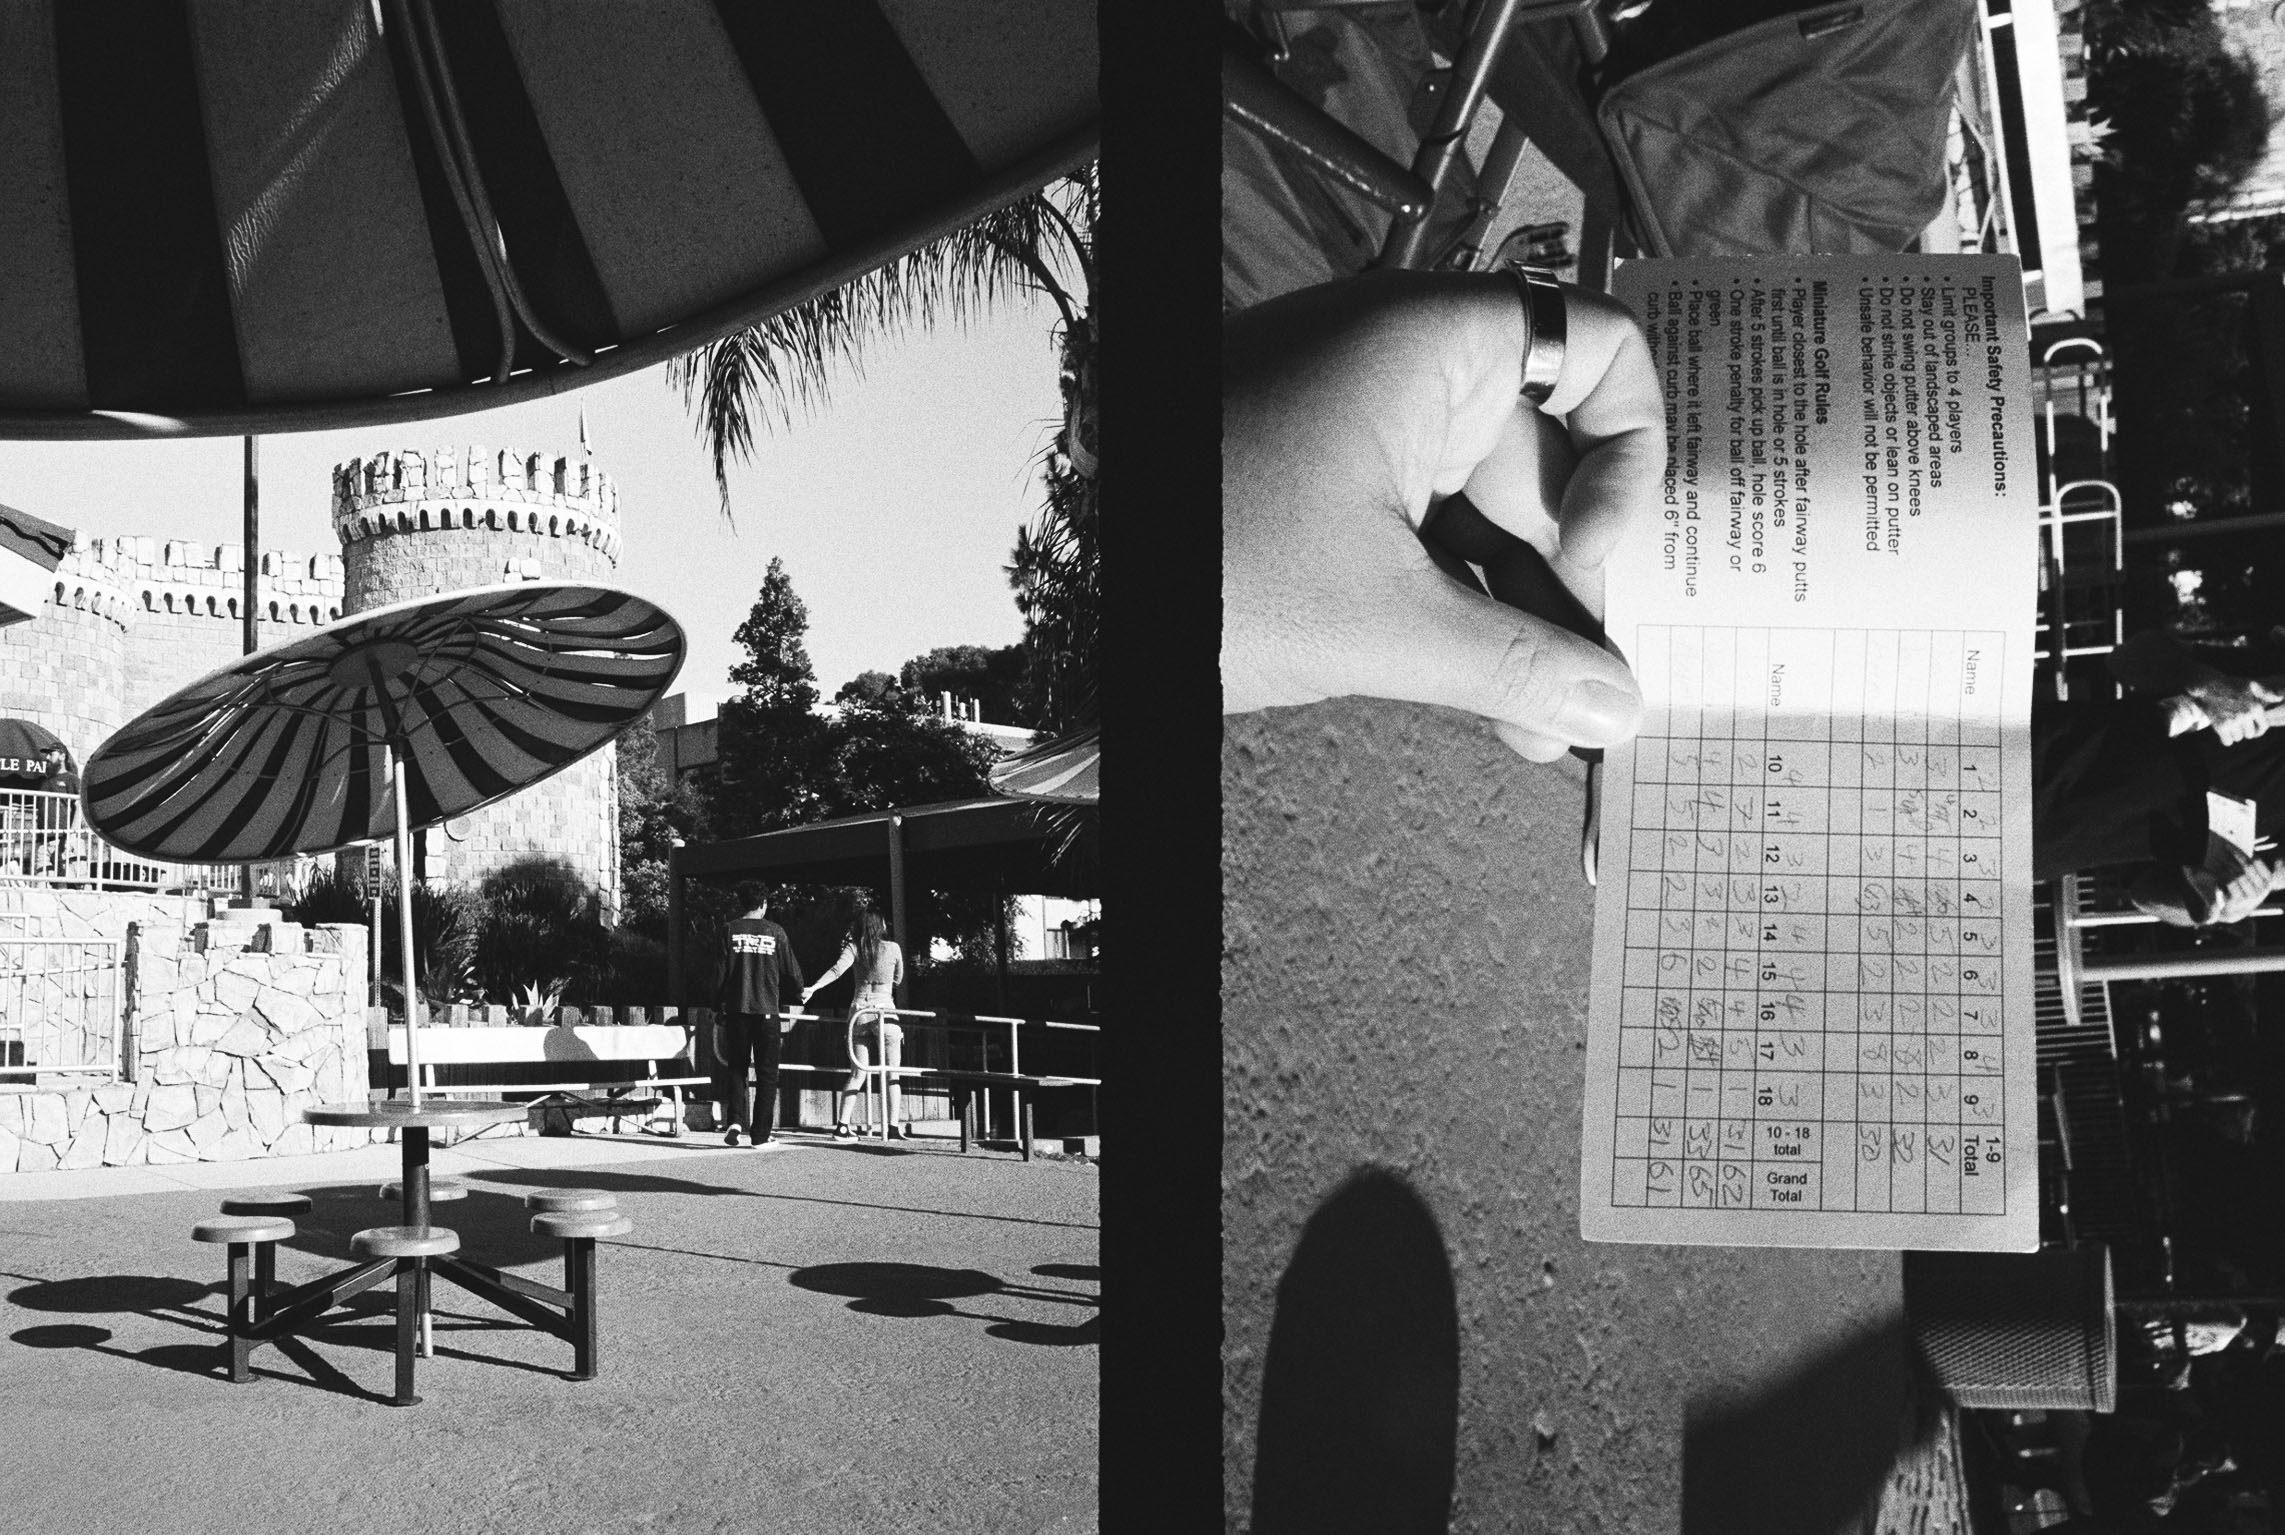 LE PAL
Important Safety Precautions:
PLEASE...
• Limit groups to 4 players
• Stay out of landscaped areas
• Do not swing putter above knees
• Do not strike objects or lean on putter
• Unsafe behavior will not be permitted
Miniature Golf Rules
• Player closest to the hole after fairway putts
first until ball is in hole or 5 strokes
• After 5 strokes pick up ball, hole score 6
• One stroke penalty for ball off fairway or
green
• Place ball where it left fairway and continue
• Ball against curb may be placed 6" from
curb
Name 1 2 3 4 5 6 7 8 9 1-9 Total
3 4 5 2 2 2 3 31
3 4 2 2 2 8 2 32
2 1 3 5 2 3 8 3 30
4 4 3 2 4 4 4 3 3
Name 10 11 12 13 14 15 16 17 18 10 - 18 total Grand Total
2 7 2 3 3 4 4 5 1 31 62
4 4 3 3 2 1 33 65
5 5 2 2 3 6 2 1 31 61